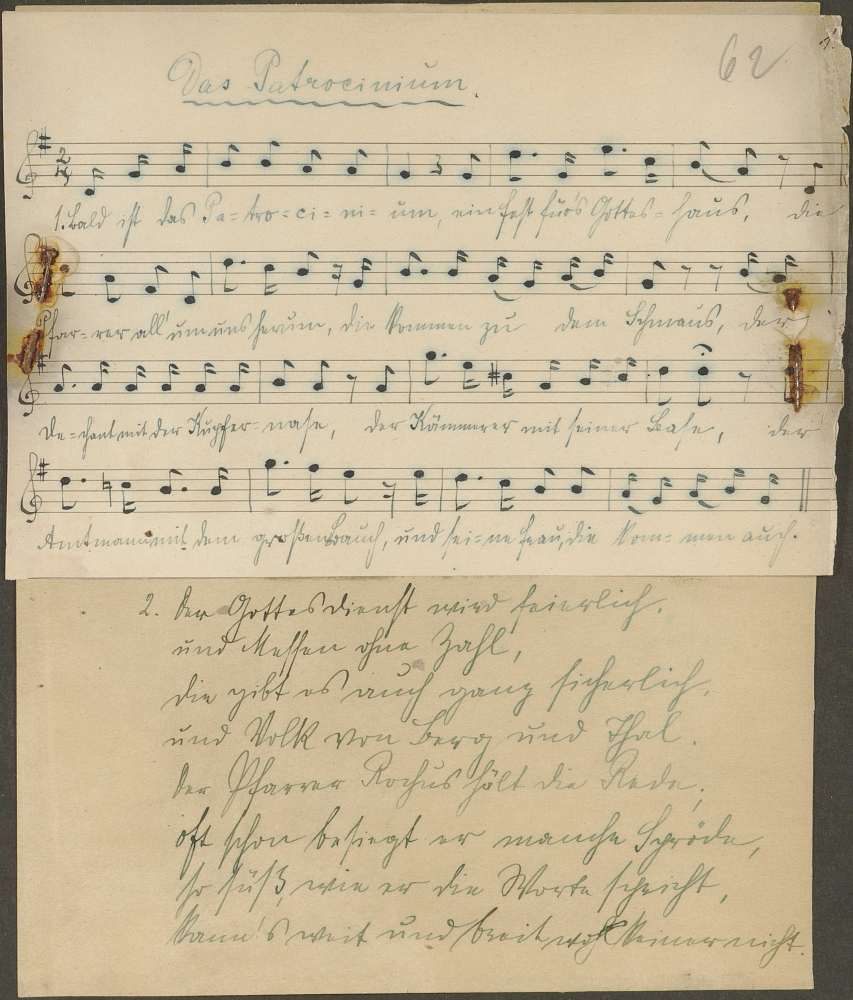 Das Patrocinium.
62
1. Bald ist das Pa=tro=ci=ni=um, ein Fest für's Gottes=haus, die
Pfar=rer all' um uns herum, die kommen zu dem Schmaus, der
De=chant mit der Kupfer=nase, der Kämmerer mit seiner Base, der
Amtmann mit dem großen Bauch, und sei=ne Frau, die kom=men auch.
2. Der Gottesdienst wird feierlich,
und Messen ohne Zahl,
die gibt es auch ganz sicherlich,
und Volk von Berg und Thal.
Der Pfarrer Rochus hält die Rede,
oft schon besiegt er manche Spröde,
so süß, wie er die Worte spricht,
kann's weit und breit wohl keiner nicht.